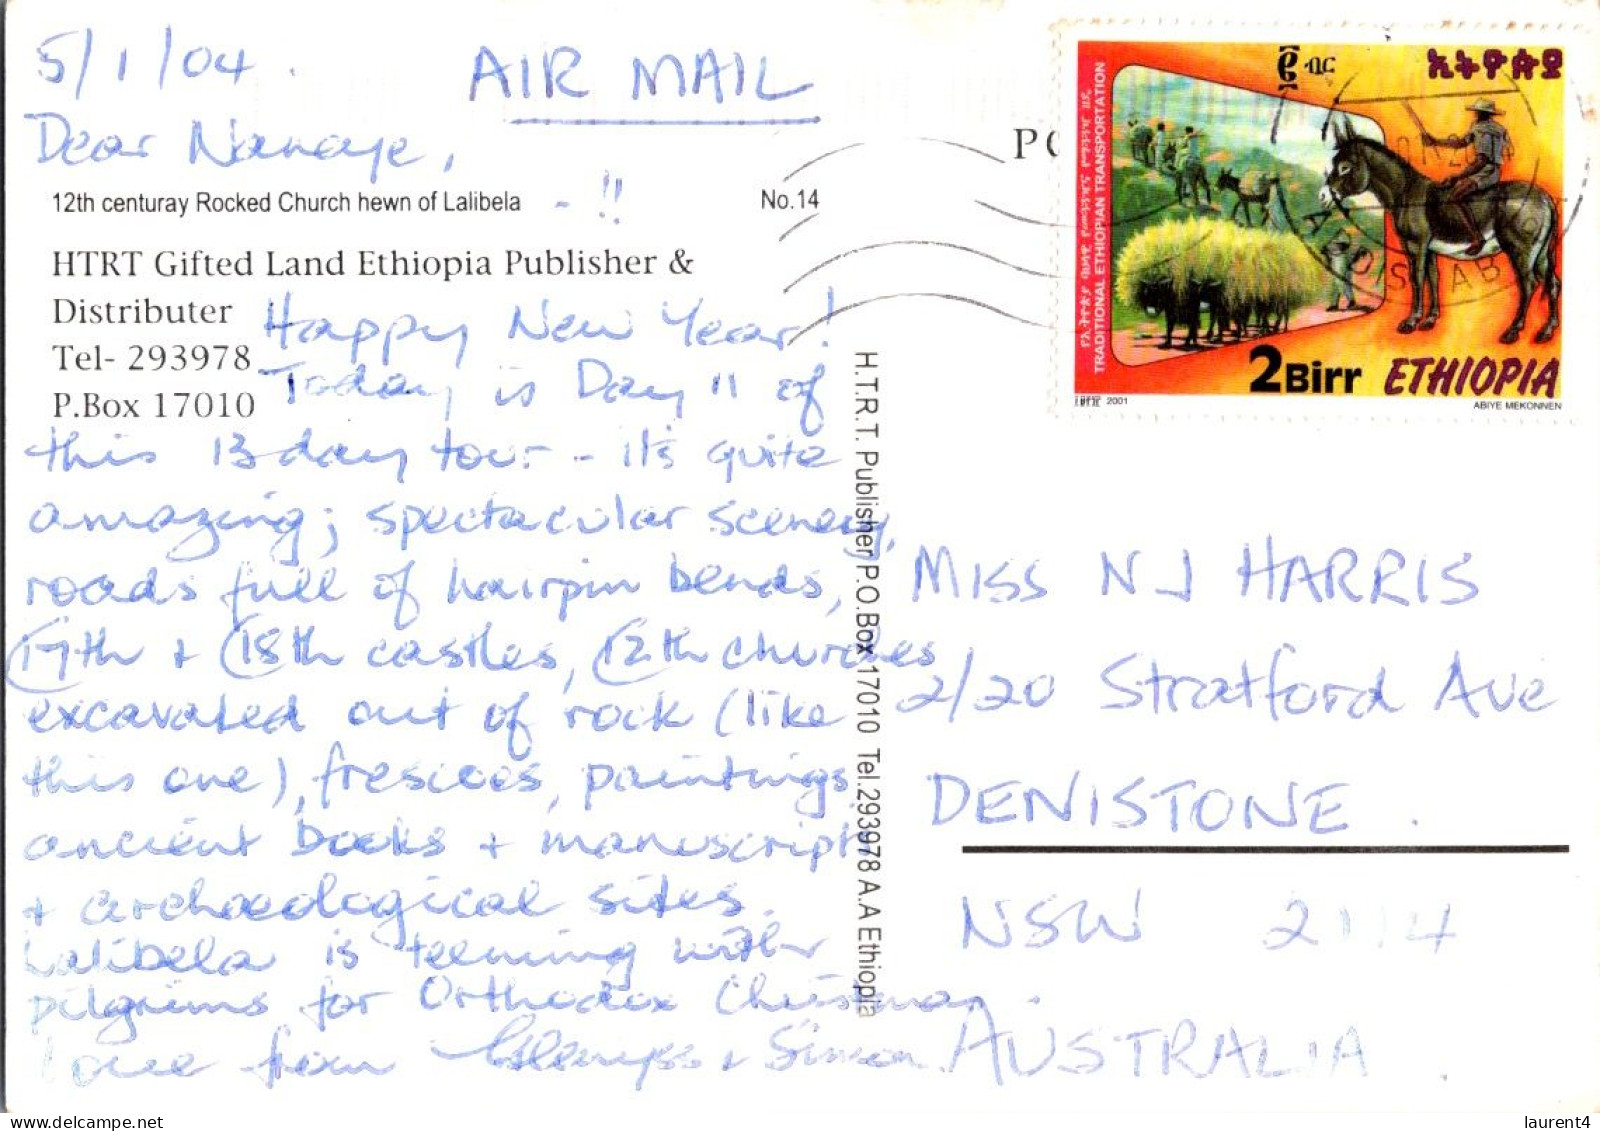 5/1/04.
AIR MAIL
Dear Nanaye,
12th centuray Rocked Church hewn of Lalibela - !!
No.14
HTRT Gifted Land Ethiopia Publisher &
Distributer
Tel- 293978
P.Box 17010
Happy New Year!
Today is Day 11 of
this 13 day tour - its quite
amazing; spectacular scenery,
roads full of hairpin bends,
17th + 18th castles, 12th churches
excavated out of rock (like
this one), frescoes, paintings,
ancient books + manuscripts
+ archaeological sites.
Lalibela is teeming with
pilgrims for Orthodox Christmas.
Love from Glenyss + Simon.
H.T.R.T. Publisher P.O.Box 17010 Tel.293978 A.A Ethiopia
PO
የኢትዮጵያ ባህላዊ የመጓጓዣና የማጓጓዣ ዘዴ
TRADITIONAL ETHIOPIAN TRANSPORTATION
፪ ብር
ኢትዮጵያ
2 Birr ETHIOPIA
2001
ABIYE MEKONNEN
ADDIS AB
MISS N J HARRIS
2/20 Stratford Ave
DENISTONE.
NSW 2114
AUSTRALIA.
laurent4